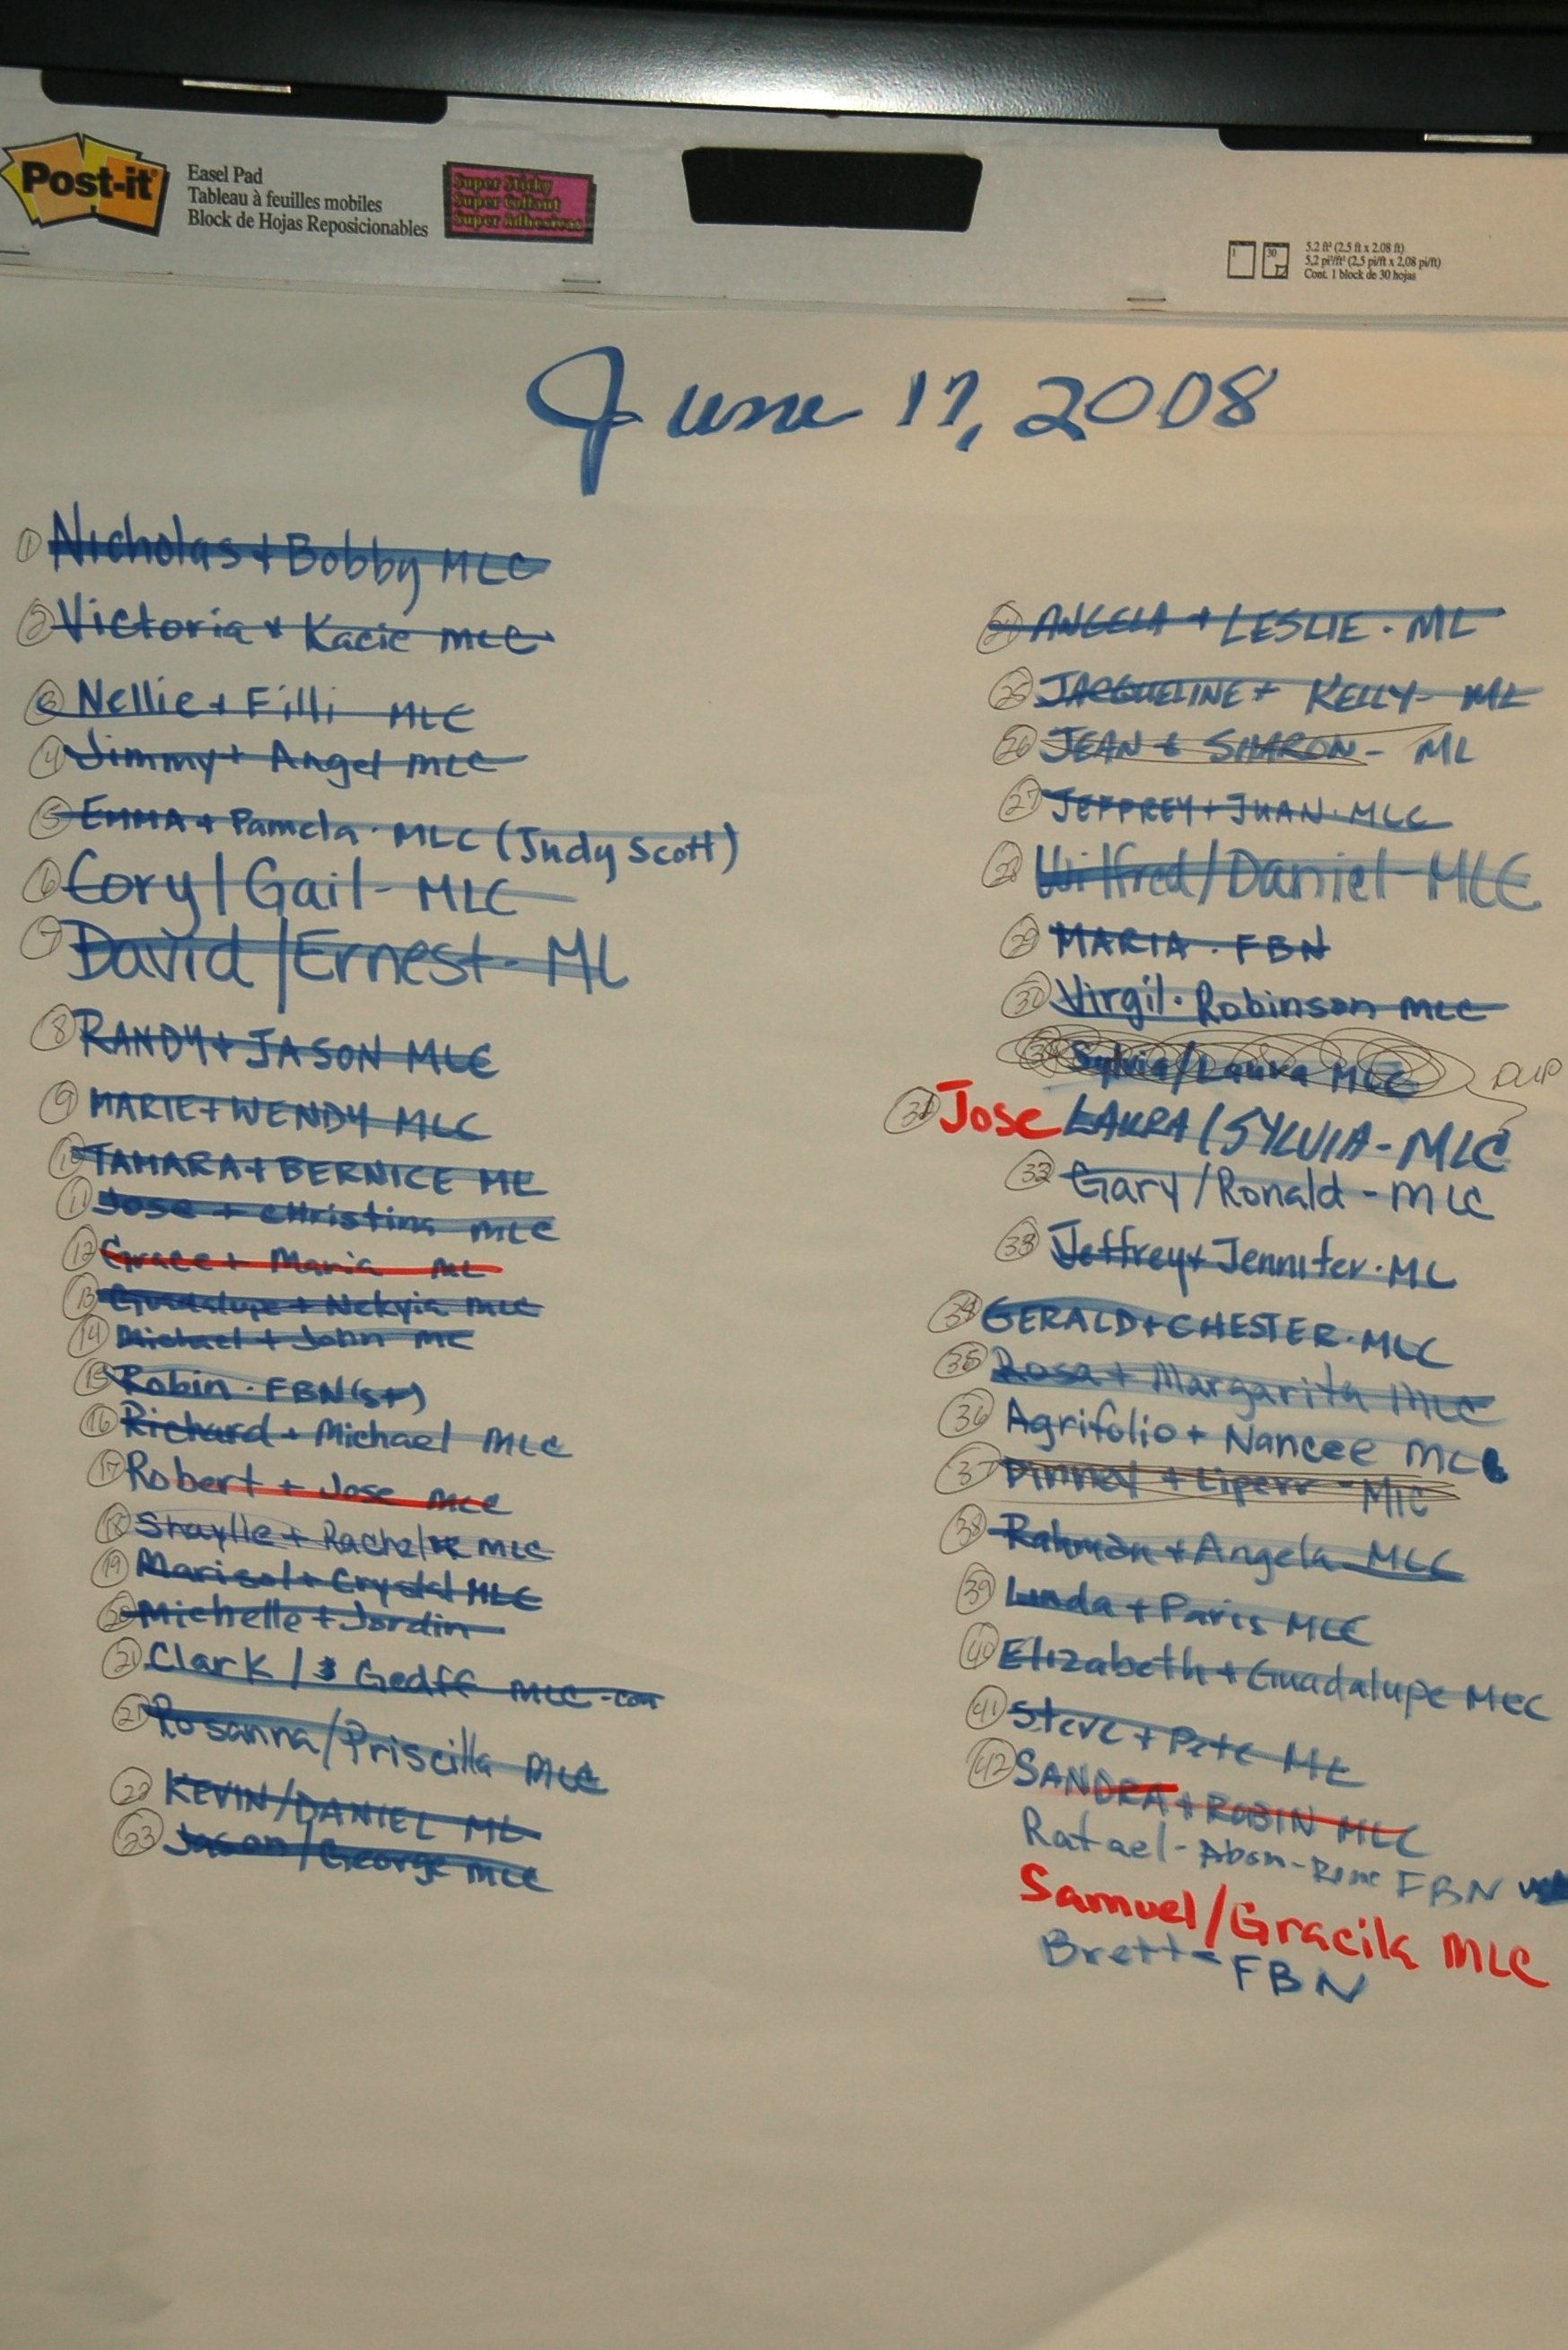 Post-it
Easel Pad
Tableau à feuilles mobiles
Block de Hojas Reposicionables
Super Sticky
Super Collant
Super Adhesivas
1
30
5.2 ft² (2.5 ft x 2.08 ft)
5,2 pi²/ft² (2,5 pi/ft x 2,08 pi/ft)
Cont. 1 block de 30 hojas
June 17, 2008
1 Nicholas + Bobby MLC
2 Victoria + Kacie MLC
3 Nellie + Filli MLC
4 Jimmy + Angel MLC
5 EMMA + Pamela · MLC (Judy Scott)
6 Cory / Gail - MLC
7 David / Ernest - ML
8 RANDY + JASON MLC
9 MARIE + WENDY MLC
10 TAMARA + BERNICE ML
11 Jose + Christina MLC
12 Grace + Maria ML
13 Guadalupe + Nekyia MLC
14 Michael + John MC
15 Robin · FBN (st)
16 Richard + Michael MLC
17 Robert + Jose MLC
18 Shaylle + MLC
19 Marisol + Crystal MLC
20 Michelle + Jordin
21 Clark / Geoff MLC -con
21 Rosanna / Priscilla MLC
22 KEVIN / DANIEL ML
23 Jason / George MLC
24 ANGELA + LESLIE · ML
25 JACQUELINE + KELLY - ML
26 JEAN & SHARON - ML
27 JEFFREY + JUAN · MLC
28 Wilfred / Daniel - MLC
29 MARIA · FBN
30 Virgil · Robinson MLC
Sylvia / Laura MLC
DUP
31 Jose LAURA / SYLVIA - MLC
32 Gary / Ronald - MLC
33 Jeffrey + Jennifer · ML
34 GERALD + CHESTER · MLC
35 Rosa + Margarita MLC
36 Agrifolio + Nancee MLC
37 + MLC
38 Rahman + Angela MLC
39 Linda + Paris MLC
40 Elizabeth + Guadalupe MLC
41 Steve + Pete ML
42 SANDRA + ROBIN MLC
Rafael - FBN
Samuel / Gracila MLC
Brett - FBN